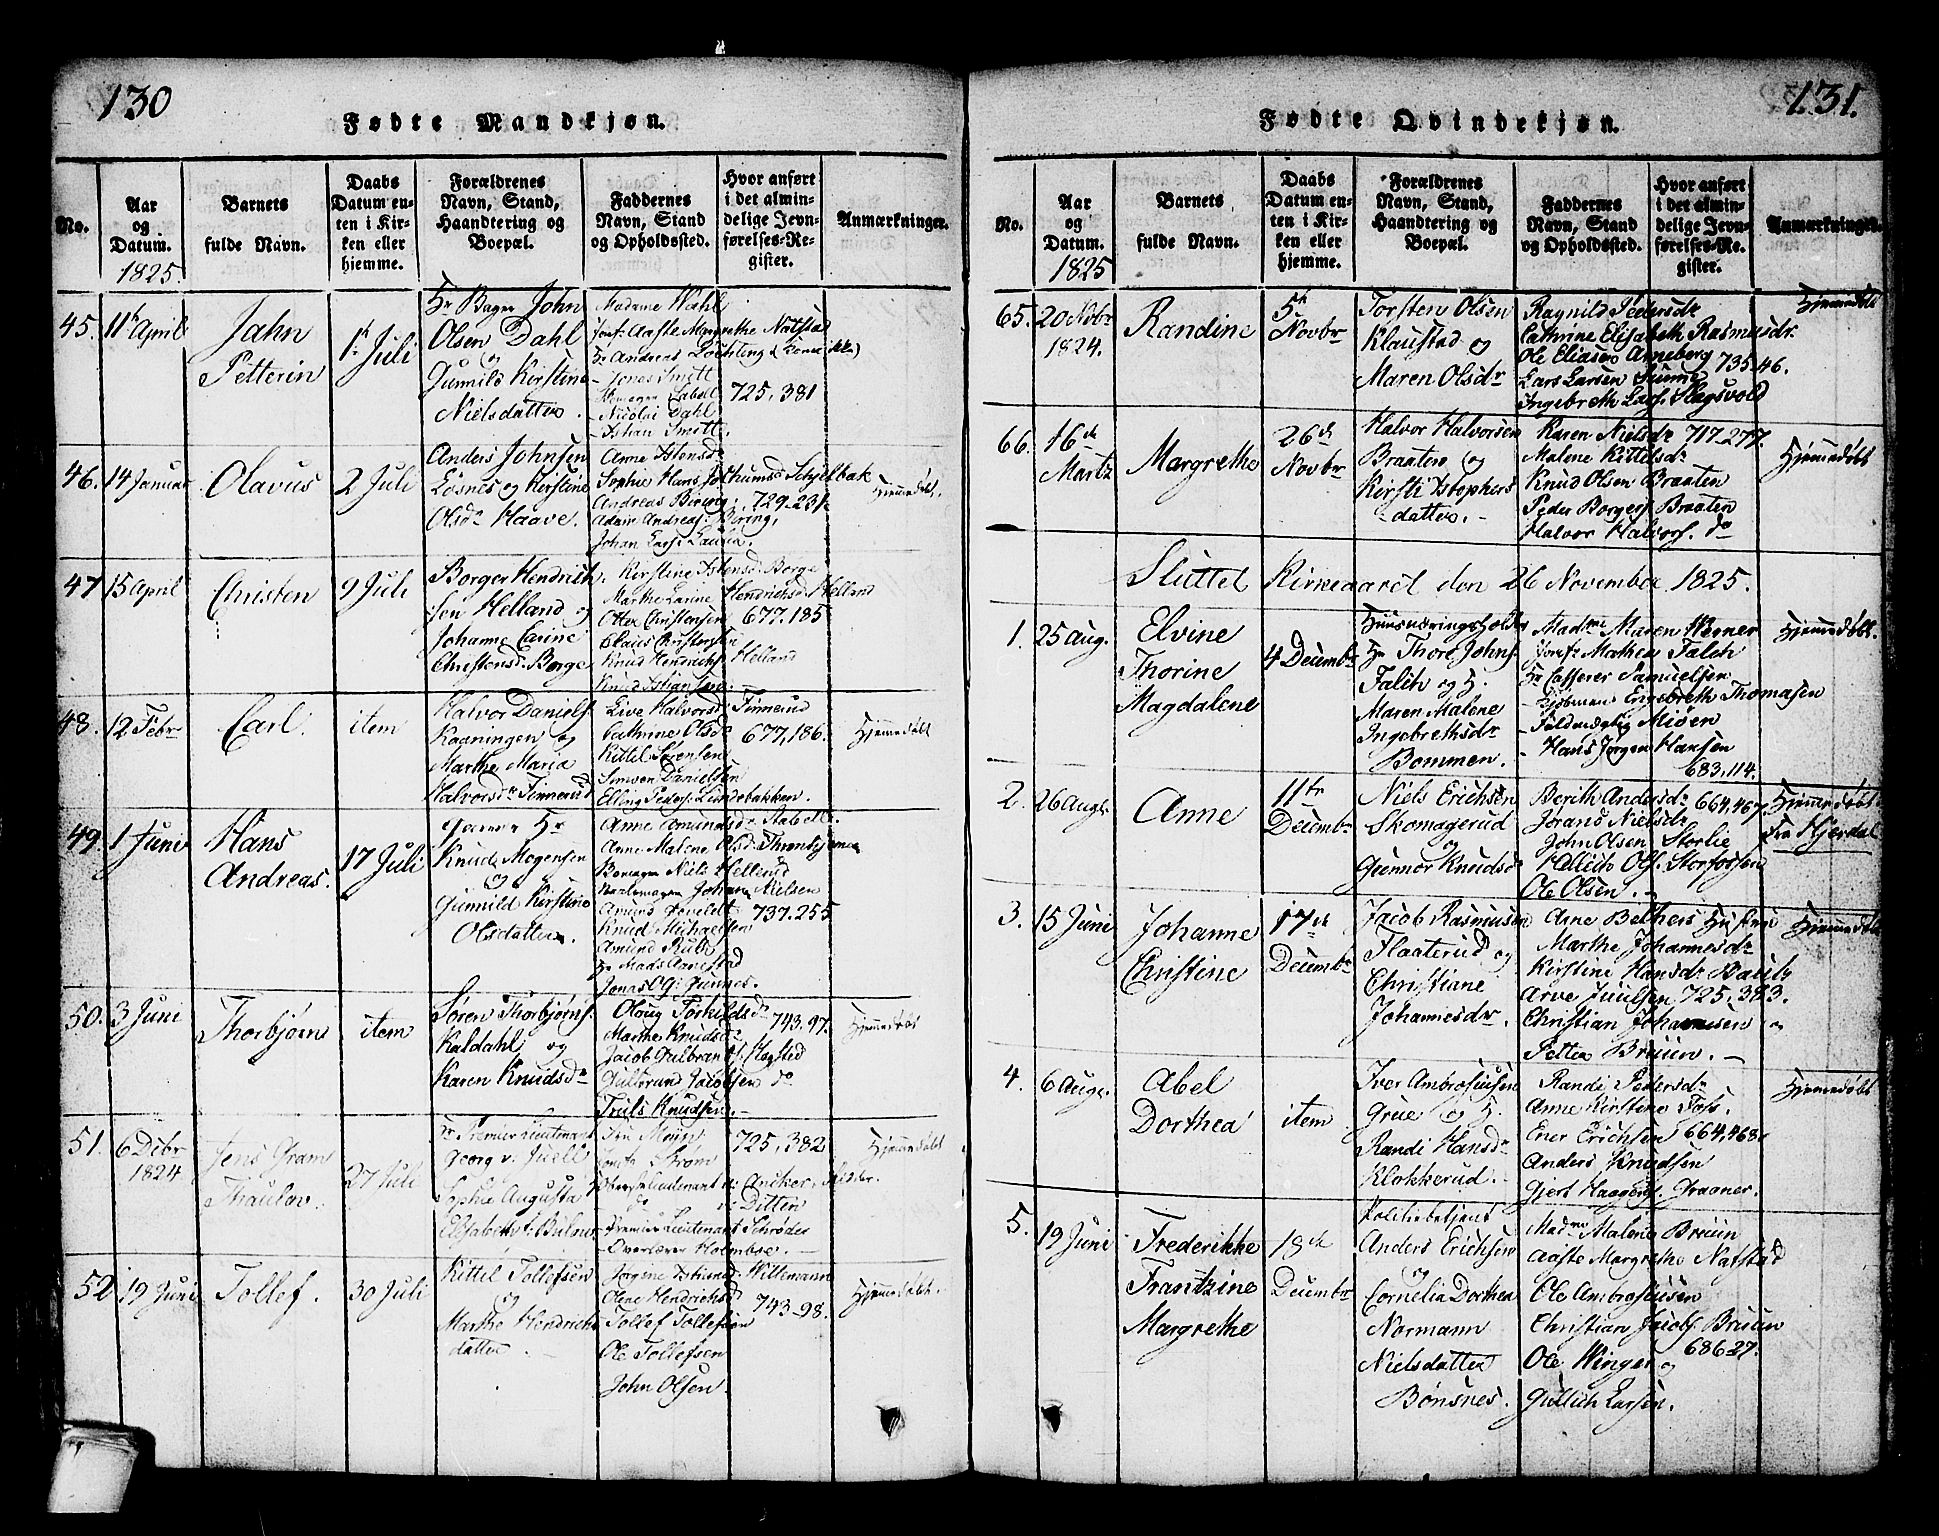 130
Fødte Mandkjøn.
No.
Aar og Datum.
1825.
Barnets fulde Navn.
Daabs Datum enten i Kirken eller hjemme.
Forældrenes Navn, Stand, Haandtering og Boepæl.
Faddernes Navn, Stand og Opholdssted.
Hvor anført i det almindelige Jevnførelses-Register.
Anmærkninger.
45. 11te April
Jahn
Petterin
1te Juli
Hr Bager John
Olsen Dahl
og
Gunnild Kirstine
Nielsdatter.
Madame Wahl
Jonf: Aaste Margrethe Natstad
Hr Andreas
Jonas Smitt
Nicolai Dahl
Johan Smitt.
725, 381
46. 14 Januar
Olavus
2 Juli
Anders Johnsen
Løsnes og Kirstine
Olsdr Haave.
Anne
Sophie Hans
Andreas Biering
Adam Andreas: Biering,
Johan Lars:
729-231
Hjemmedøbt.
47 15 April
Christen
9 Juli
Borger Hendrich
sen Helland og
Johanne Carine
Christensd: Borge
Kirstine
Borge
Marthe Larine Hendrichsd: Helland
Otter Christensen
Claus Christensen
Knud Hendrichs: Helland
Knud
677.185
48. 12 Febr
Carl.
item
Halvor Daniels:
Kaaningen og
Marthe Maria
Halvorsdr Finnerud
Live Halvorsd: Finnerud
Cathrine Olsdr
Kittel Sørensen
Simen Danielsen
Elling Peders: Lundebakken.
677,186.
Hjemmedøbt
49. 1 Juni
Hans
Andreas.
17 Juli
Hr
Knud Mogensen
og
Gunnild Kirstine
Olsdatter.
Anne Amundsdr
Anne Malene Olsd:
Niels Hellerud
Johan Nielsen
Amund
Knud Michaelsen
Amund Rub
Hr Mads Aanestad
Jonas
737.255
50. 3 Juni
Thorbjørn
item
Søren Thorbjørns:
Kaldahl og
Karen Knudsdr
Oloug Torkildsdr
Marthe Knudsdr
Jacob Gulbrands: Hagsted
Gulbrand Jacobsen do
Truls Knudsen.
743.97.
Hjemmedøbt
51. 6 Decbr
1824
Jens Gram
Thaulov.
27 Juli
Hr Premier Lieutenant
Georg v: Juell
Sophie Augusta
Elisabeth f: Bulner
Fru
Strøm
Oberstlieutenant v: Ancker,
do v: Ditten
Premier Lieutenant Schrøder
Overlærer Holmboe.
725, 382
Hjemmedøbt
52 19 Juni
Tollef.
30 Juli
Kittil Tollefsen
og
Marthe Hendrichs
datter.
Jørgine
Willemann
Olene Hendrichsd
Tollef Tollefsen
Ole Tollefsen
John Olsen.
743-98.
Hjemmedøbt.
131.
Fødte Qvindekjøn.
No.
Aar og Datum.
1825
Barnets fulde Navn.
Daabs Datum enten i Kirken eller hjemme.
Forældrenes Navn, Stand, Haandtering og Boepæl.
Faddernes Navn, Stand og Opholdssted.
Hvor anført i det almindelige Jevnførelses-Register.
Anmærkninger.
65. 20 Novbr
1824.
Randine
5te
Novbr
Torsten Olsen
Klaustad og
Maren Olsdr
Ragnild Pedersdr
Cathrine Elisabeth Rasmusdr.
Ole Eliasen Arneberg 735-46.
Lars Larsen
Ingebreth Lars: Hagsvold
Hjemmedøbt
66. 16de
Martz
Margrethe
26de
Novbr
Halvor Halvorsen
Braaten og
Kirsti Istophers
datter.
Karen Nielsdr 717-277.
Malene Kittelsdr
Knud Olsen Braaten
Peder Borgers: Braaten
Halvor Halvors: do
Hjemmedøbt
Sluttet Kirkeaaret den 26 November 1825.
1. 25 Aug.
Elvine
Thorine
Magdalene
4 Decembr
Huusnæringsholder
Hr Thore Johns:
Falch og H.
Maren Malene
Ingebrethsdr
Bommen.
Madme Maren Werner
Jonfr: Mathea Falch
Hr Casserer Samuelsen
Kjøbmand Engebreth Thomasen
Fuldmægtig Miøen
Hans Jørgen Hansen
683,114.
Hjemmedøbt.
2. 26 Augs.
Anne
11te
Decembr
Niels Erichsen
Skomagerud
og
Gunnor Knudsd
Berith Andersdr 664,467.
Jorand Nielsdr
John Olsen Storlie
Ols: Storfossen
Ole Olsen.
Hjemmedøbt
fra Hjerdal
3. 15 Juni
Johanne
Christine
17de
Decembr
Jacob Rasmusen
Flaaterud og
Christiane
Johannesdr.
Ane Belhers Hustrue
Marthe Johannesdr
Kirstine Hansdr
Arve Juulsen 725,383.
Christian Johannesen og
Petter Bruun.
Hjemmedøbt
4. 6 Augs.
Abel
Dorthea
item
Iver Ambrosiusen
Grue og H.
Randi Hansdr
Klokkerud.
Randi Pedersdr
Anne Kirstine Foss.
Ener Erichsen 664,468.
Anders Knudsen
Gjert Haagens: Graaner.
Hjemmedøbt
5. 19 Juni
Frederikke
Frantzine
Margrethe
18de
Decembr
Politiebetjent
Anders Erichsen
og
Cornelia Dorthea
Normann
Nielsdatter
Bønsnes.
Madme Malene Bruun
Aaste Margrethe Natstad
Ole Ambrosiusen
Christian Jacobs: Bruun
686-27.
Ole Winger og
Gullich Larsen.